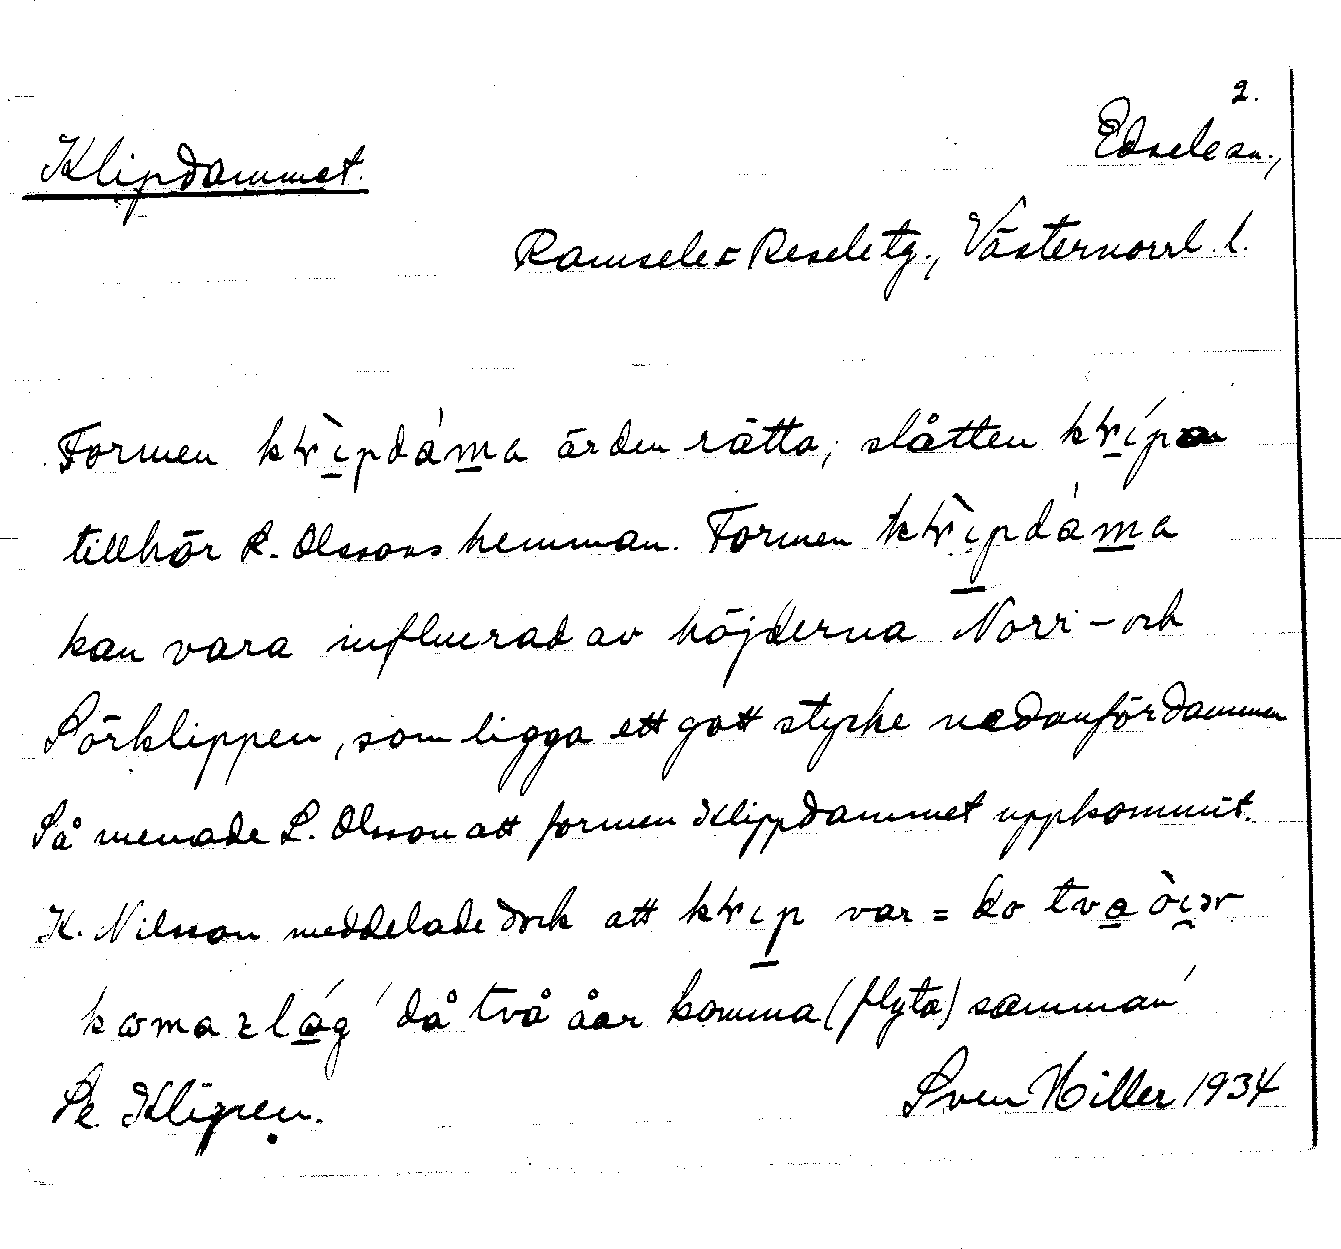 2.
Klipdammet.
Edsele sn.,
Ramsele = Resele tg., Västernorrl. l.
Formen är den rätta; slåtten
tillhör L. Olssons hemman. Formen
kan vara influerad av höjderna Norr- och
Sörklippen, som ligga ett gott stycke nedanför dammen
Så menade L. Olsson att formen Klippdammet uppkommit.
K. Nilsson meddelade dock att var = do
'då två åar komma (flyta) samman'
Se Klipen.
Sven Hiller 1934